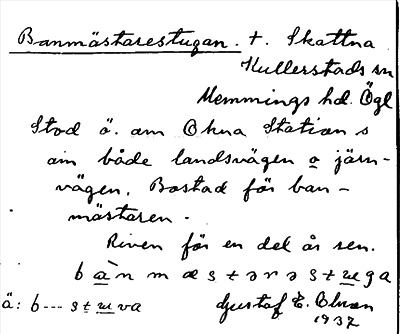 Banmästarestugan. t. Skattna
Kullerstads sn
Memmings hd. Ögl
Stod ö. om Okna Station s
om både landsvägen o järn-
vägen. Bostad för ban-
mästaren.
Riven för en del år sen.
b a n m æ s t ə r ə s t u g a
ä: b--- s t u v a
Gustaf E. Olsson
1937